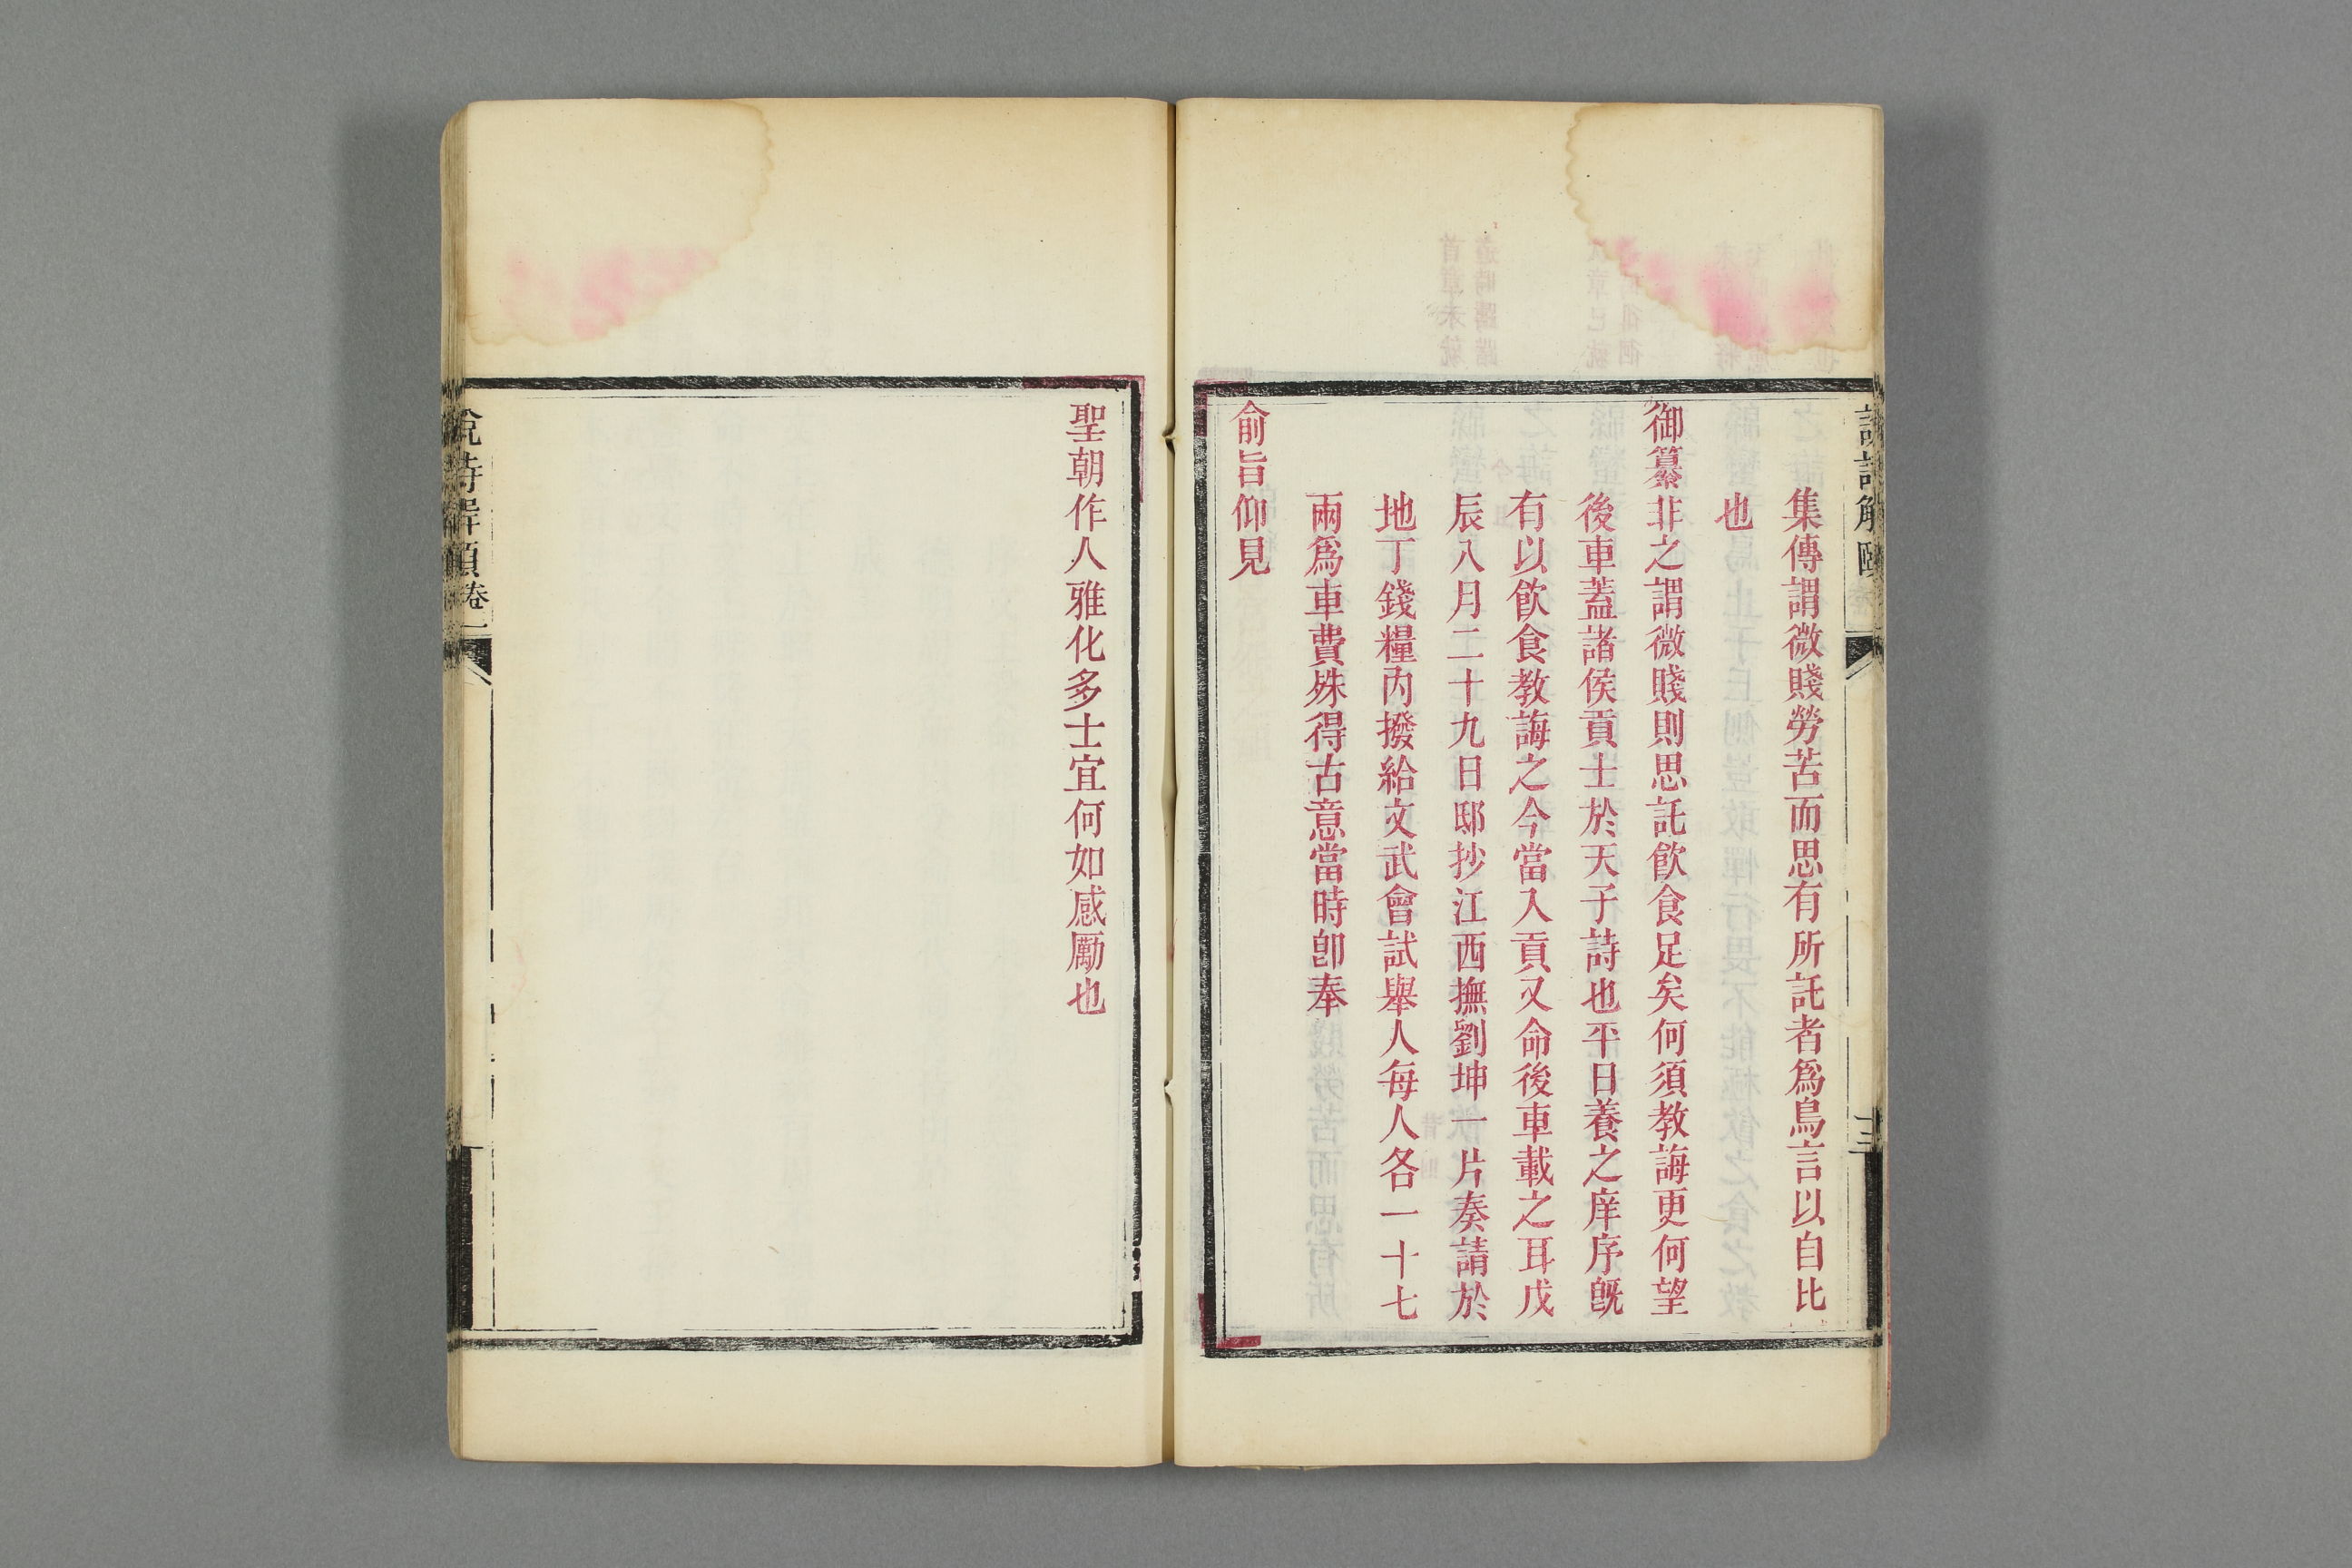 集傳謂微賤勞苦而思有所託者爲鳥言以自比
也
御纂非之謂微賤則思託飮食足矣何須教誨更何望
後車蓋諸侯貢士於天子詩也平日養之庠序旣
有以飮食教誨之今當入貢又命後車載之耳戊
辰八月二十九日邸抄江西撫劉坤一片奏請於
地丁錢糧內撥給文武會試舉人每人各一十七
兩爲車費殊得古意當時卽奉
俞旨仰見
聖朝作人雅化多士宜何如感厲也
說詩解頤卷一